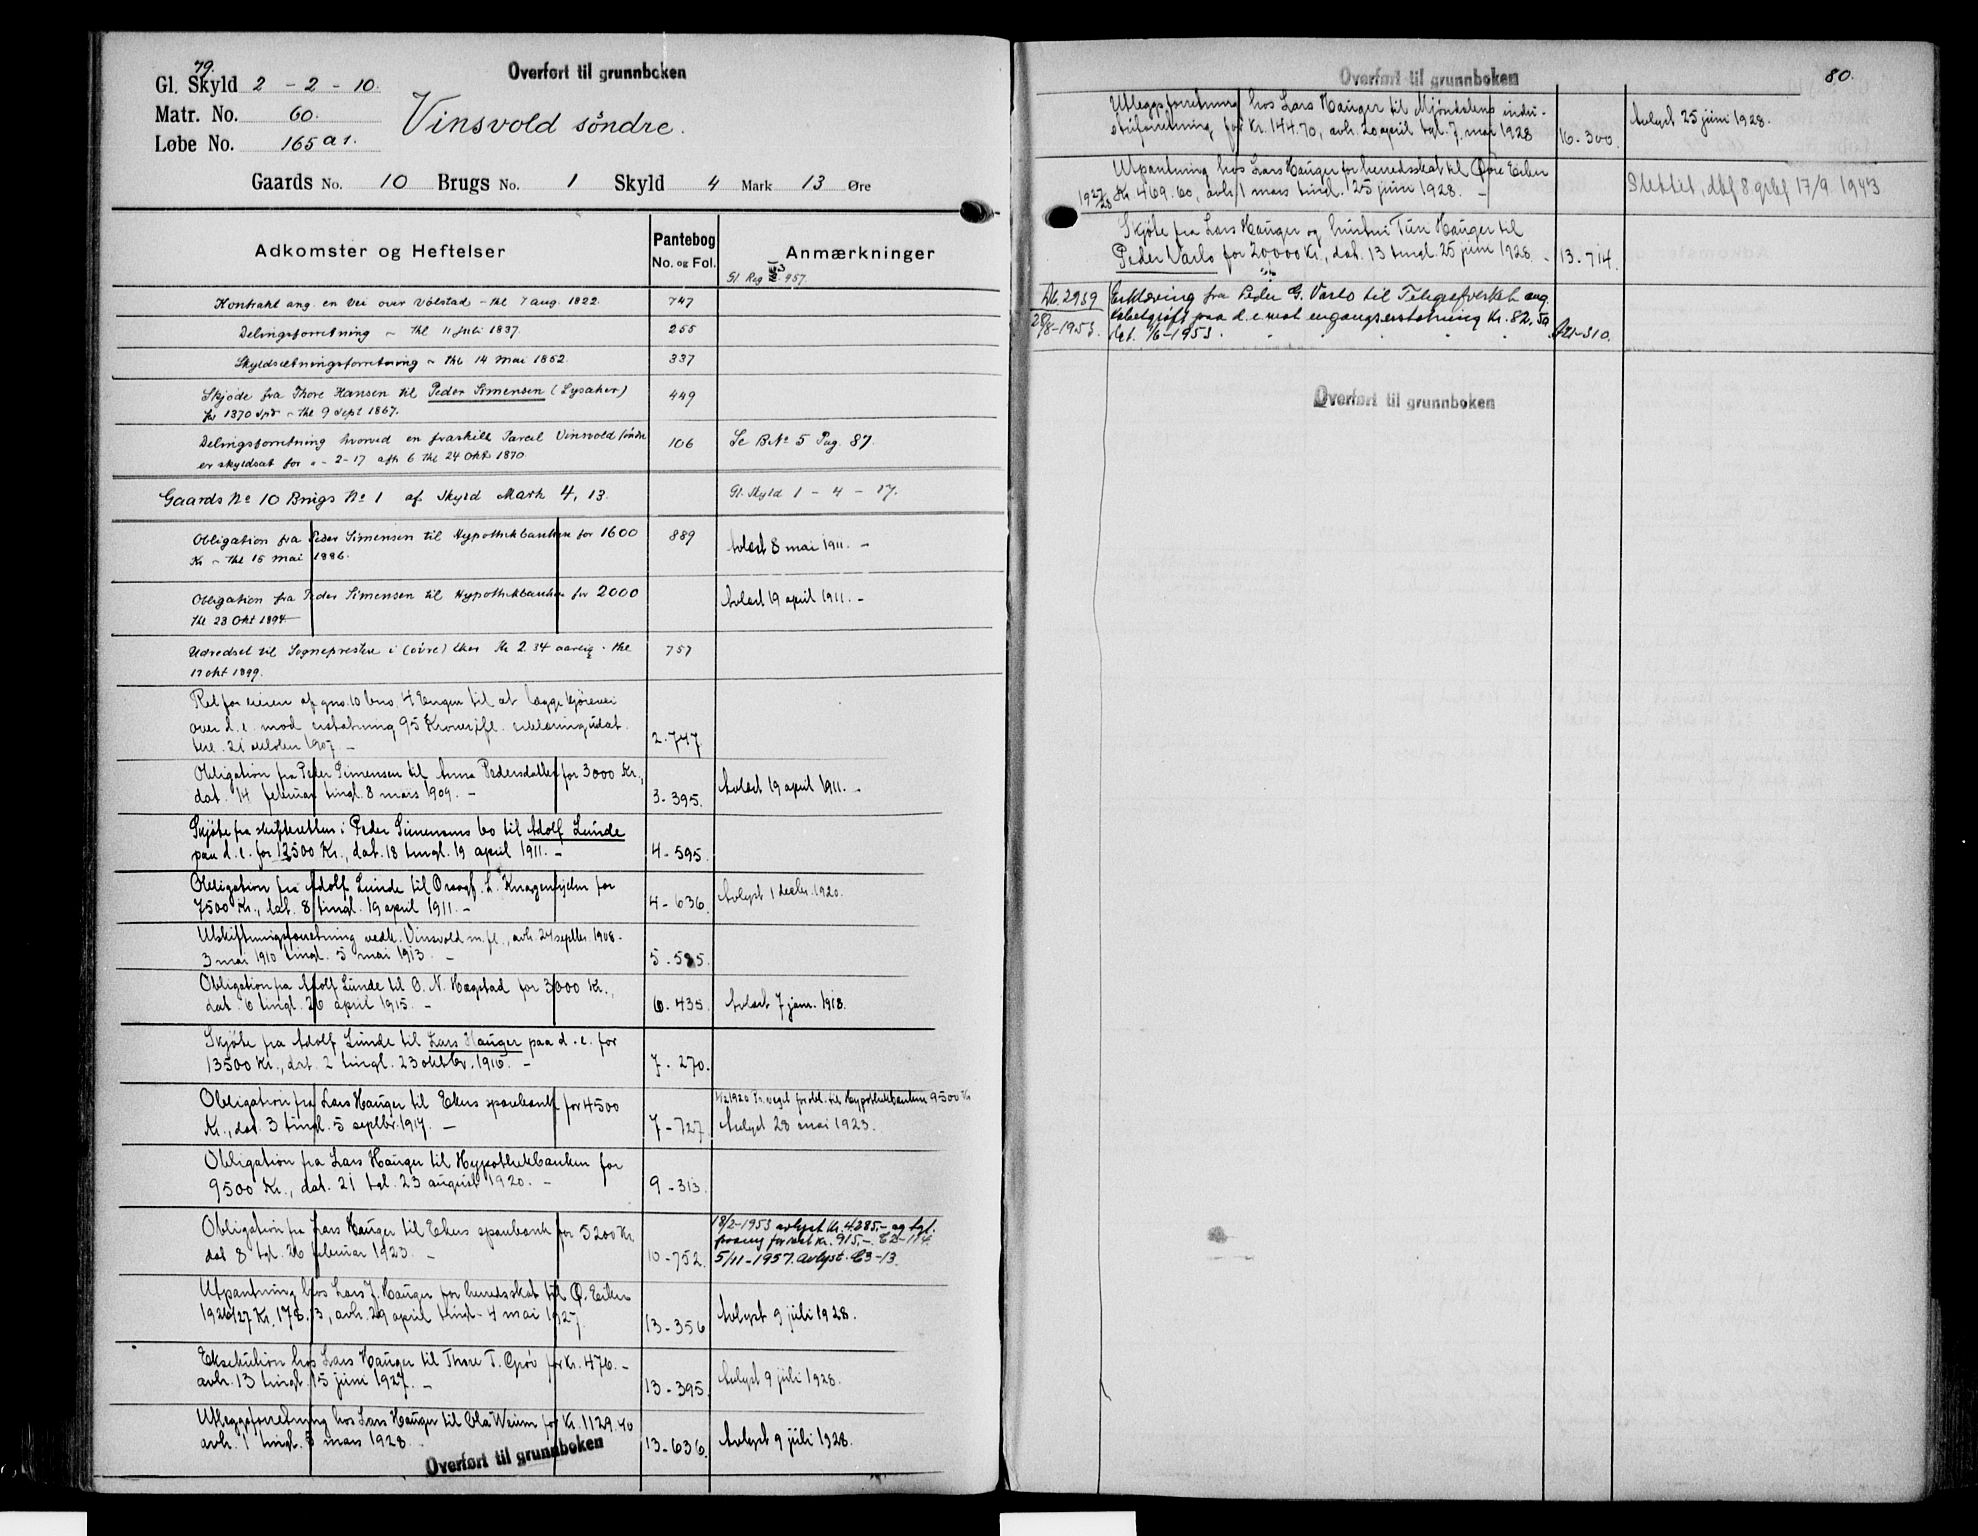 79.
Overført til grunnboken
Gl. Skyld 2 - 2 - 10.
Matr. No. 60.
Løbe No. 165 a 1.
Vinsvold søndre.
Gaards No. 10 Brugs No. 1 Skyld 4 Mark 13 Øre
Adkomster og Heftelser
Pantebog
No. og Fol.
Anmærkninger
Gl Reg 957.
Kontrakt ang. en Vei over Volstad - thl 7 aug. 1822. 747
Delingsforretning - thl 11 Juli 1837. 255
Skyldsætningsforretning - thl 14 Mai 1852. 337
Skjøde fra Thore Hansen til Peder Simensen (Lysaker) 449
for 1370 Spd - thl 9 Sept 1867.
Delingsforretning hvorved en fraskilt Parcel Vinsvold søndre 106 Se BNo 5 Pag. 87.
er skyldsat for " - 2 - 17 afh 6 thl 24 Okt 1870
Gaards No 10 Brugs No 1 af Skyld Mark 4, 13. Gl. Skyld 1 - 4 - 17.
Obligation fra Peder Simensen til Hypothekbanken for 1600 889
Kr - thl 15 Mai 1886. Avlæst 8 mai 1911. -
Obligation fra Peder Simensen til Hypothekbanken for 2000 Avlæst 19 april 1911. -
thl 23 Okt 1894
Udredsel til Sognepresten i (øvre) Eker Kr 2.34 aarlig - thl 757
17 okt 1899.
Ret for eieren af gno. 10 bno. 4 Engen til at lægge kjørevei
over d. e. mod erstatning 95 Kroner, ifl. erklæring udat.
tnl. 21 oktober 1907. - 2-747
Obligation fra Peder Simensen til Anna Pedersdatter for 3000 Kr.,
dat. 14 februar tingl. 8 mars 1909. - 3-395. Avlæst 19 april 1911. -
Skjøte fra skifteretten i Peder Simensens bo til Adolf Lunde
paa d. e. for 12500 Kr., dat. 18 tingl. 19 april 1911. - 4-595.
Obligation fra Adolf Lunde til Ovragf. L. Knagenhjelm for
7500 Kr., dat. 8 tingl. 19 april 1911. - 4-636. Avlyst 1 decbr. 1920.
Utskiftningsforretning vedk. Vinsvold m. fl., avh. 24 septbr. 1908-
3 mai 1910 tingl. 5 mai 1913. - 5-585.
Obligation fra Adolf Lunde til O. N. Hægstad for 3000 Kr.,
dat. 6 tingl. 26 april 1915. - 6-435. Avlæst 7 jan. 1918.
Skjøte fra Adolf Lunde til Lars Hauger paa d. e. for
13500 Kr., dat. 2 tingl. 23 oktbr. 1916. - 7-270.
Obligation fra Lars Hauger til Ekers sparebank for 4500
Kr., dat. 3 tingl. 5 septbr. 1917. - 7-727
1/12 1920 Pr. veget for obl. til Hypothekbanken 9500 Kr
Avlyst 28 mai 1923.
Obligation fra Lars Hauger til Hypothekbanken for
9500 Kr., dat. 21 tgl. 23 august 1920. - 9-313.
Obligation fra Lars Hauger til Ekers sparebank for 5200 Kr.
dat 8 tgl. 26 februar 1923. - 10-752.
18/2-1953 avlyst Kr. 4285,- og tgl.
for rest kr. 915,-. C2-114.
5/11-1957. Avlyst. C3-13.
Utpantning hos Lars J. Hauger for herredsskat til Ø. Eiker
1926/27 Kr. 178.13, avh. 29 april tingl. 4 mai 1927. 13-356 Avlyst 9 juli 1928.
Eksekution hos Lars Hauger til Thore T. Grøv for Kr. 476. -
avh. 13 tingl. 15 juni 1927. - 13-395. Avlyst 9 juli 1928.
Utleggsforretning hos Lars Hauger til Ola Weum for Kr. 1129.40
avh. 1 tingl. 8 mars 1928. - 13-636. Avlyst 9 juli 1928.
Overført til grunnboken
Overført til grunnboken
80.
Utleggsforretning hos Lars Hauger til Mjøndalens indu-
striforretning for Kr. 144.70, avh. 20 april tgl. 7. mai 1928 16-300. Avlyst 25 juni 1928.
Utpantning hos Lars Hauger for herredsskat til Øvre Eiker
1927/28 Kr 469.60, avh. 1 mars tingl. 25 juni 1928. - Slettet, dbf 8 gebf 17/9. 1943
Skjøte fra Lars Hauger og hustru Turi Hauger til
Peder Varlo for 20,000 Kr., dat. 13 tingl. 25 juni 1928 - 13-714.
Db. 2959 Erklæring fra Peder G. Varlo til Telegrafverket ang.
28/8-1953. kabelgrøft paa d. e. mot engangserstatning Kr. 82,50
dat. 1/6-1953. A21-310.
Overført til grunnboken